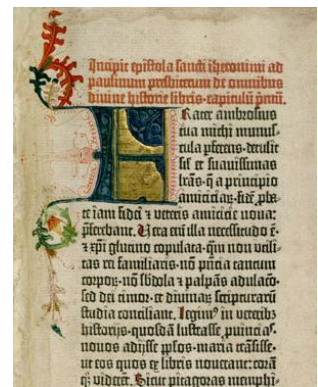 Incipit epistola sancti iheronimi ad
paulinum presbiterum de omnibus
divine historie libris·capitulū pmū.
FRater ambrosius
tua michi munus-
cula pferens·detulit
sil' et suavissimas
lr̄as·q̄ a principio
amiciciaꝝ·fidē pba-
te iam fidei ⁊ veteris amicicie nova:
pferebant. Vera enī illa necessitudo ē·
⁊ xp̄i glutino copulata·qm̄ non utili-
tas rei familiaris·nō pn̄cia tantum
corpoꝝ·nō sb̄dola ⁊ palpās adulacō·
sed dei timor·et divinaꝝ scripturarū
studia conciliant. Legimꝰ in veteribꝫ
historijs·quosdā lustrasse puincias·
novos adijsse pplos·maria trāsisse·
ut eos quos ex libris noverant: corā
qꝫ viderēt. Sicut pitagoras memphi-